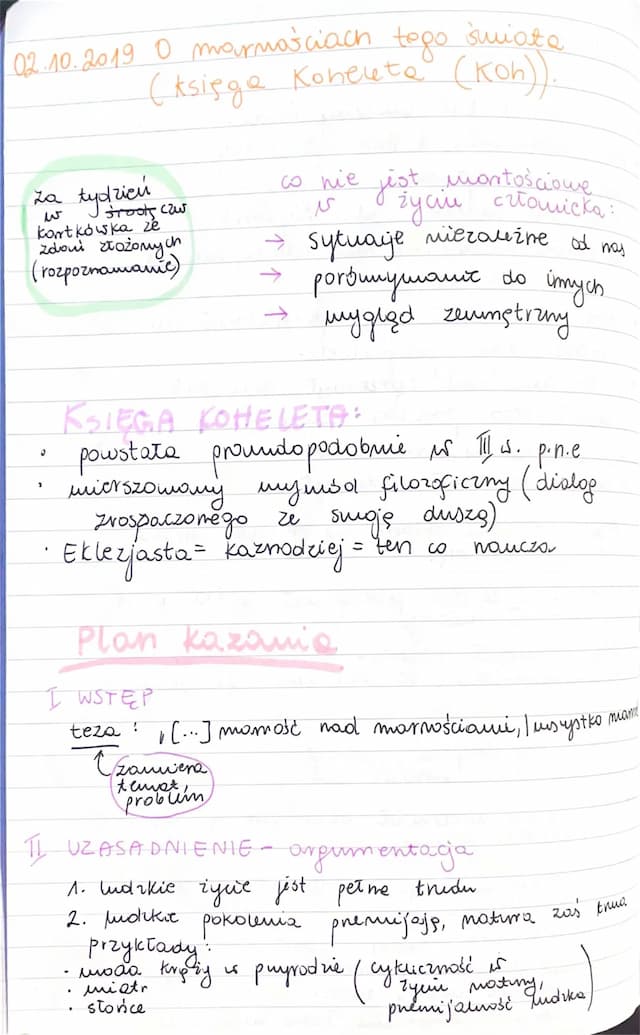 02.10.2019 O marnościach tego świata
(Księga Koheleta (Koh)).
za tydzień
w środę czw
kartkówka ze
zdań złożonych
(rozpoznawanie)
co nie jest wartościowe
w życiu człowieka:
→ sytuacje niezależne od nas
→ porównywanie do innych
→ wygląd zewnętrzny
KSIĘGA KOHELETA:
• powstała prawdopodobnie w III w. p.n.e
• wierszowany wywód filozoficzny (dialog
zrospaczonego ze swoją duszą)
• Eklezjasta = kaznodziej = ten co naucza
Plan kazania
I WSTĘP
teza: „[...] marność nad marnościami, | wszystko marn
zawiera
temat,
problem
II UZASADNIENIE – argumentacja
1. ludzkie życie jest pełne trudu
2. ludzkie pokolenia przemijają, natura zaś trwa
przykłady:
• woda krąży w przyrodzie (cykliczność w
życiu natury,
przemijalność ludzka)
• wiatr
• słońce